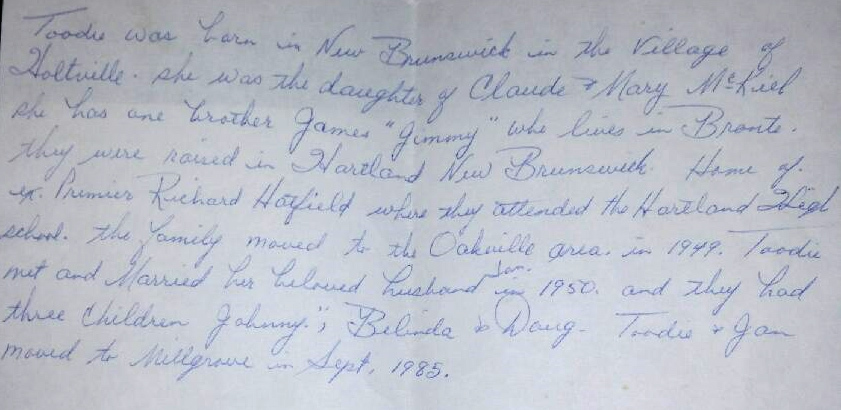 Toodie was born in New Brunswick in the Village of
Holtville. she was the daughter of Claude & Mary McKiel
she has one brother James "Jimmy" who lives in Bronte.
they were raised in Hartland New Brunswick. Home of.
ex. Premier Richard Hatfield where they attended the Hartland High
school. the family moved to the Oakville area. in 1949. Toodie
met and Married her beloved husband Jan. in 1950. and they had
three children Johnny.", Belinda & Doug. Toodie & Jan
moved to Millgrove in Sept. 1985.